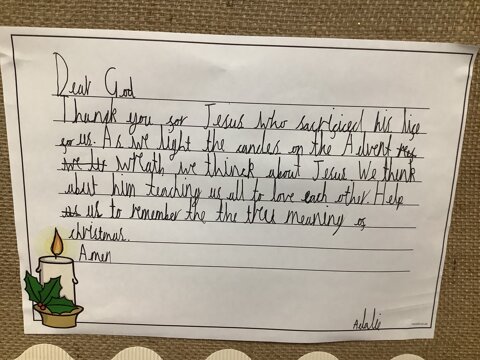 Dear God
Thank you for Jesus who sacrificed his life
for us. As we light the candles on the Advent
we wreath we think about Jesus We think
about him teaching us all to love each other Help
us to remember the the true meaning of
christmas.
Amen